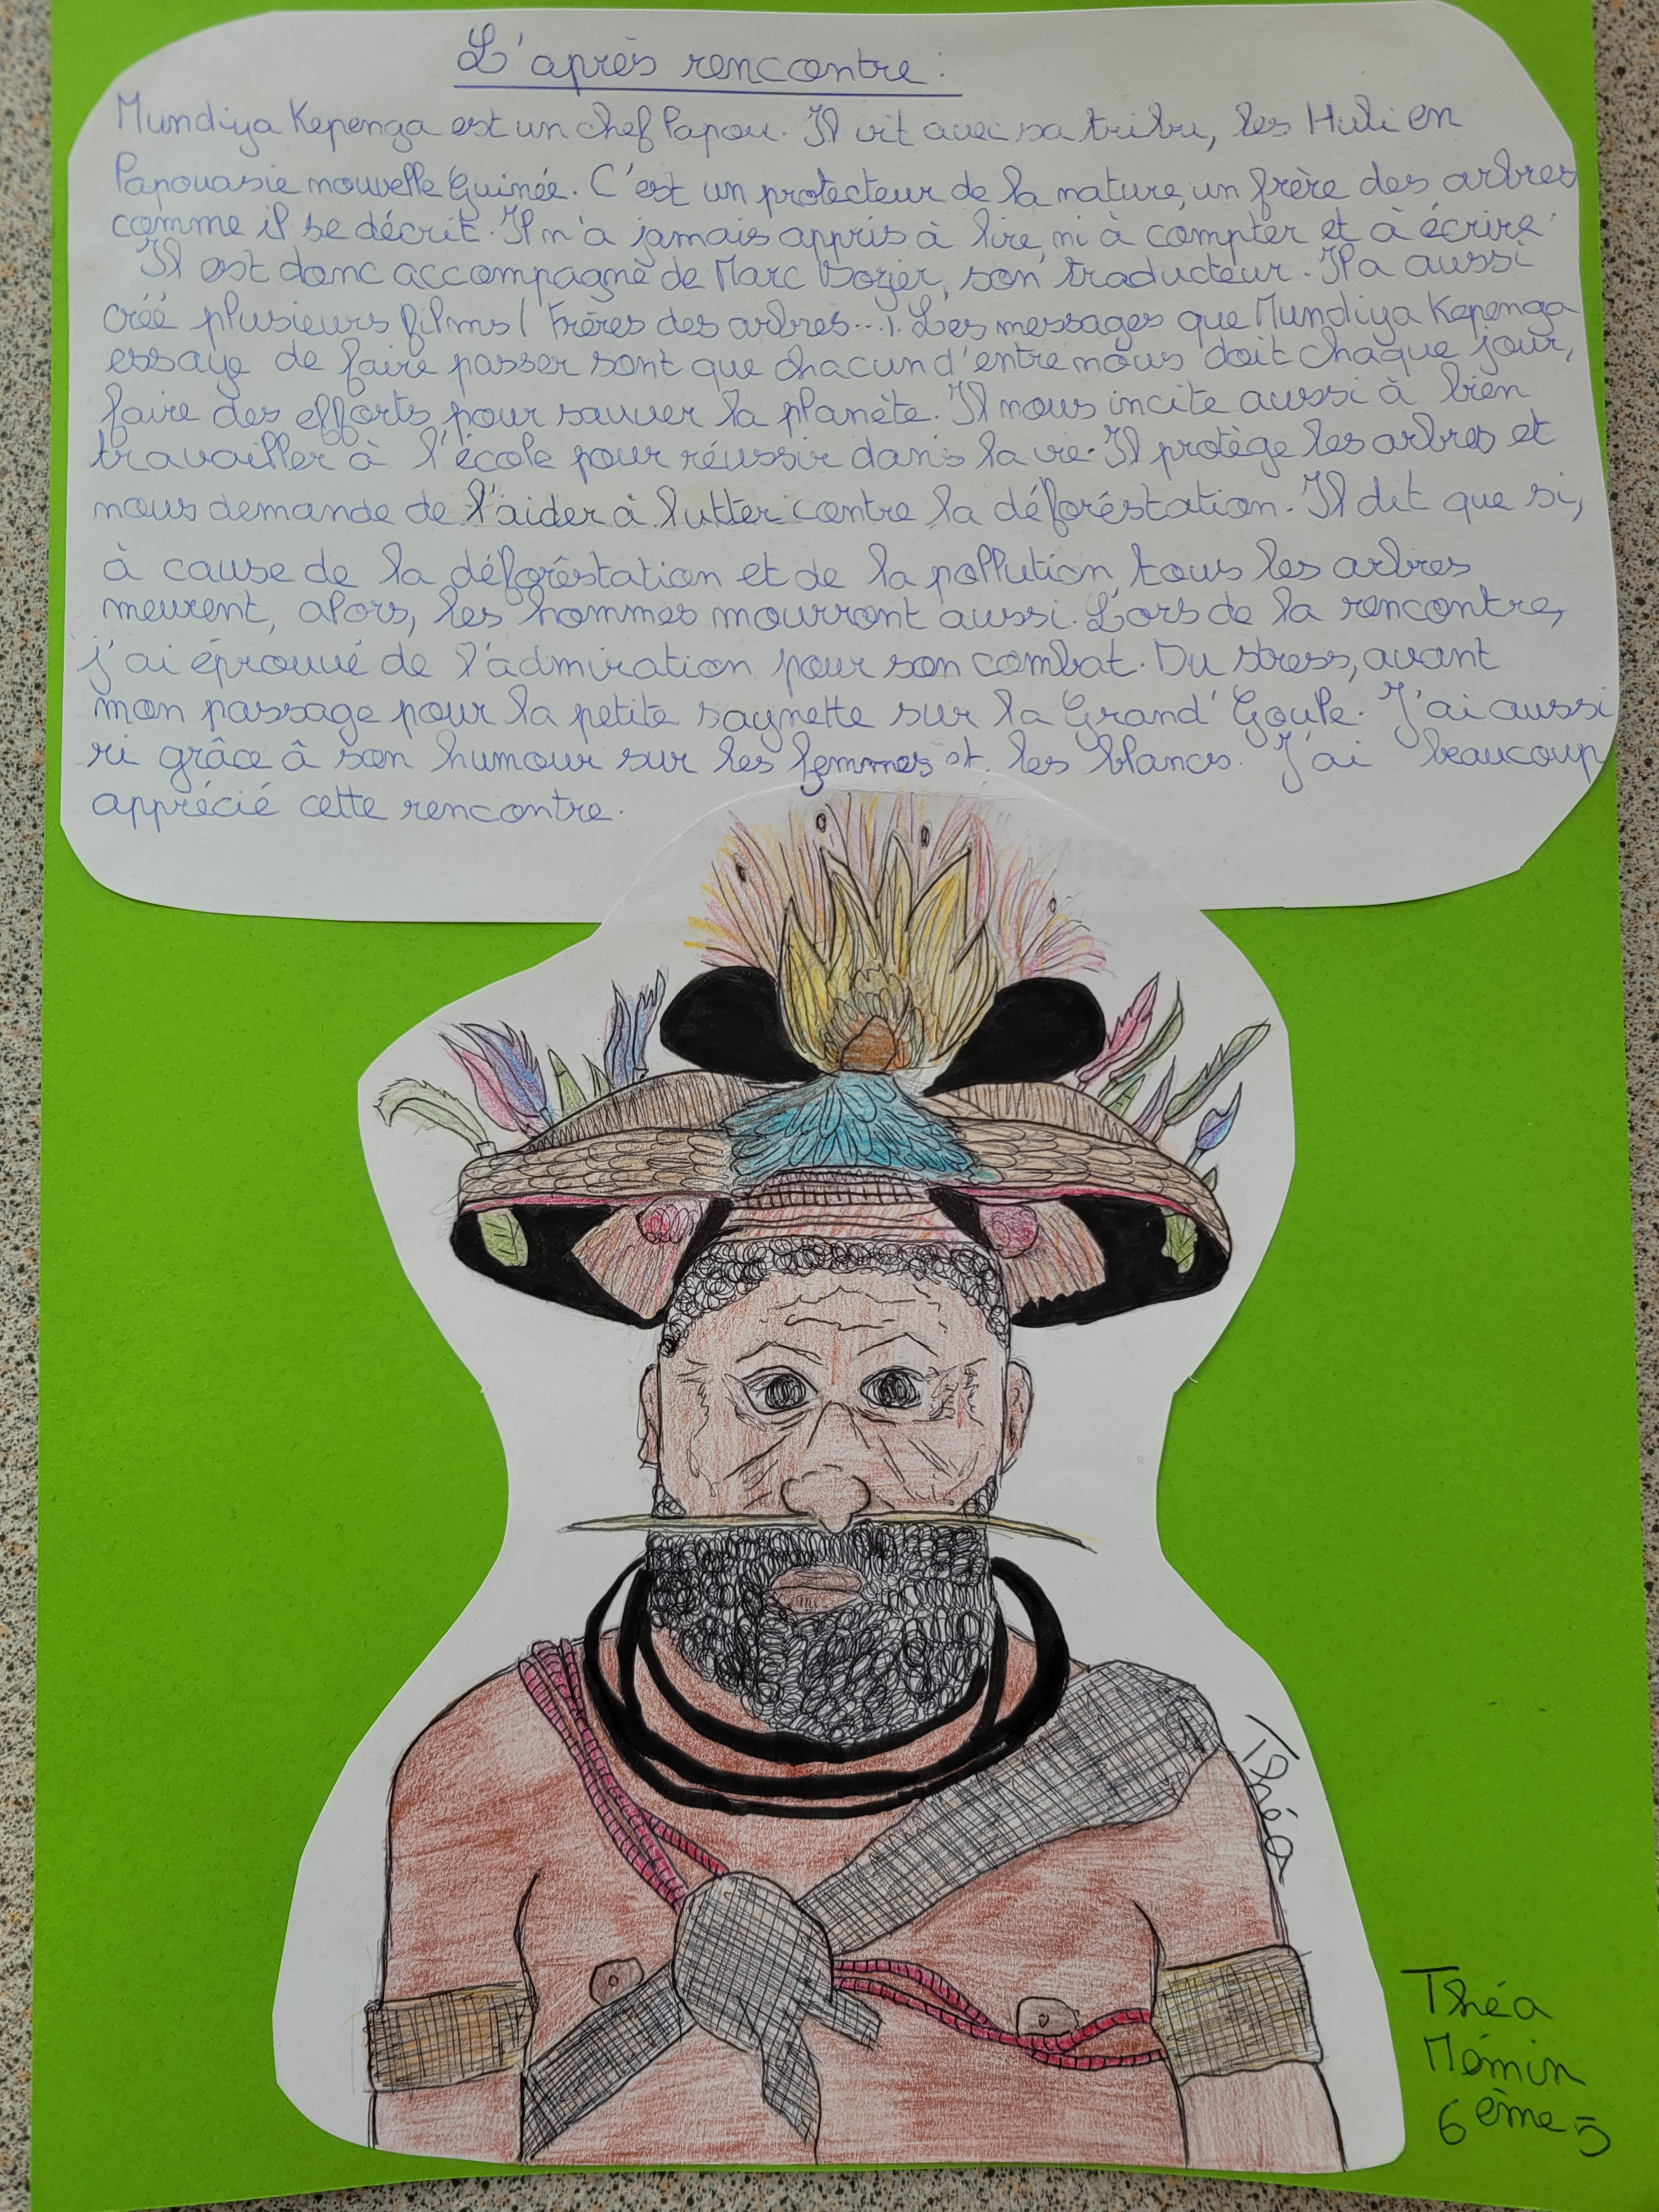 L'après rencontre:
Mundiya Kepenga est un chef Papou. Il vit avec sa tribu, les Huli en
Papouasie nouvelle Guinée. C'est un protecteur de la nature, un frère des arbres
comme il se décrit. Il n'a jamais appris à lire, ni à compter et à écrire.
Il est donc accompagné de Marc Dozier, son traducteur. Il a aussi
créé plusieurs films (Frères des arbres...). Les messages que Mundiya Kepenga
essaye de faire passer sont que chacun d'entre nous doit chaque jour,
faire des efforts pour sauver la planète. Il nous incite aussi à bien
travailler à l'école pour réussir dans la vie. Il protège les arbres et
nous demande de l'aider à lutter contre la déforéstation. Il dit que si,
à cause de la déforêstation et de la pollution, tous les arbres
meurent, alors, les hommes mourront aussi. Lors de la rencontre,
j'ai éprouvé de l'admiration pour son combat. Du stress, avant
mon passage pour la petite saynette sur la Grand'Goule. J'ai aussi
ri grâce â son humour sur les femmes et les blancs. J'ai beaucoup
apprécié cette rencontre.
Théa
Théa
Mémin
6ème 5